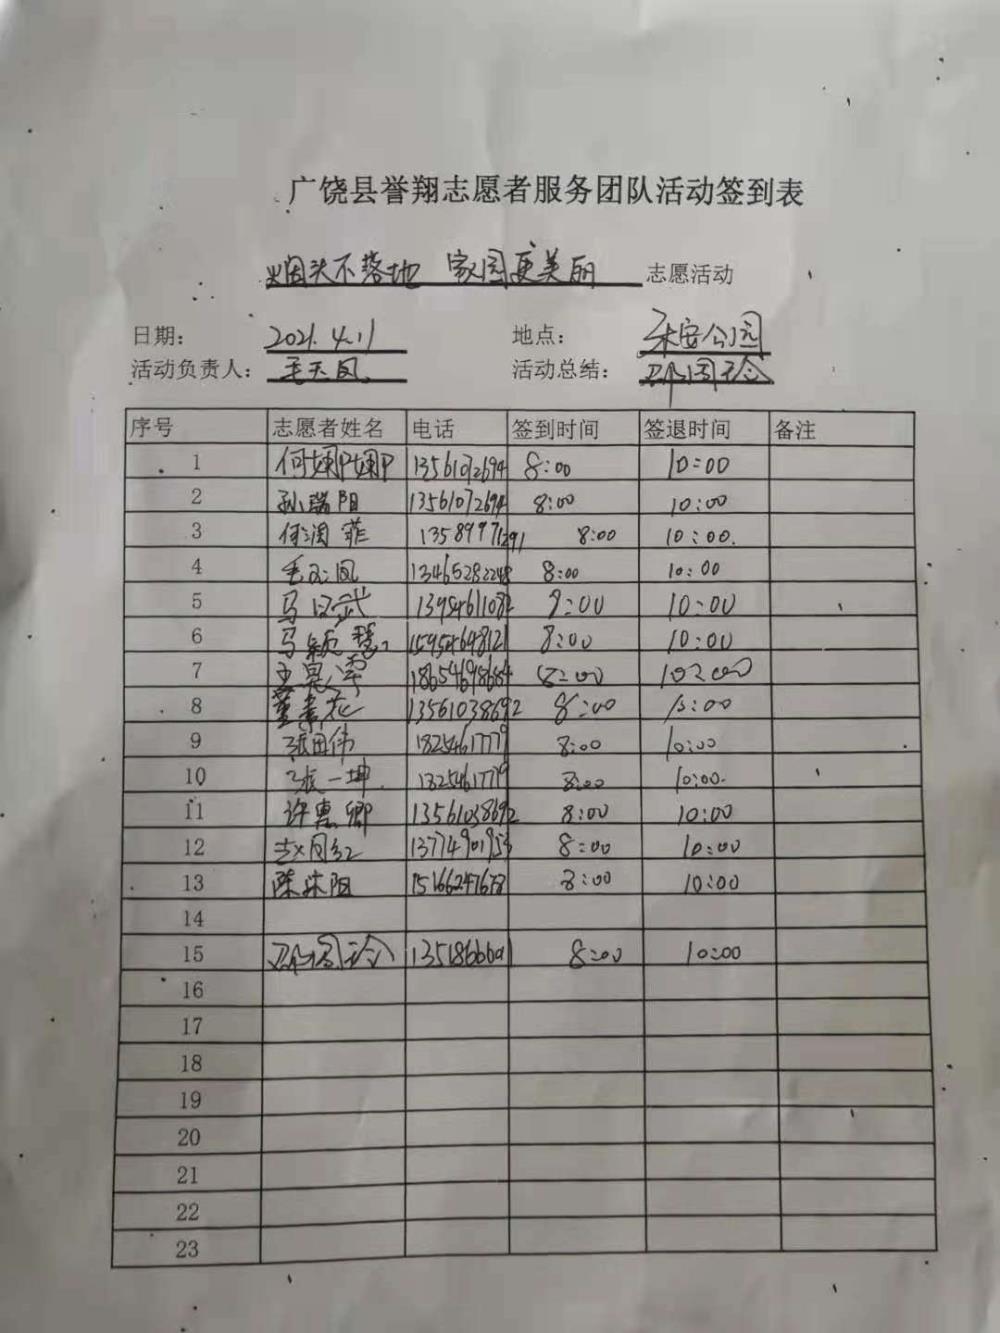 广饶县誉翔志愿者服务团队活动签到表
烟头不落地 家园更美丽 志愿活动
日期： 2021.4.11 地点： 永安公园
活动负责人： 毛玉凤 活动总结：
序号 志愿者姓名 电话 签到时间 签退时间 备注
1 何娜娜 13561072694 8:00 10:00
2 孙瑞阳 13561072694 8:00 10:00
3 何润菲 13589971291 8:00 10:00.
4 毛玉凤 13465282248 8:00 10:00
5 马汉武 8:00 10:00
6 马颖慧 15954648121 8:00 10:00
7 18654698684 8:00 10:00
8 董素花 13561038692 8:00 10:00
9 张田伟 1825461777 8:00 10:00
10 张一坤 8:00 10:00.
11 许惠卿 13561038692 8:00 10:00
12 赵同红 13774901953 8:00 10:00
13 陈沐阳 15166247678 8:00 10:00
14
15 8:00 10:00
16
17
18
19
20
21
22
23